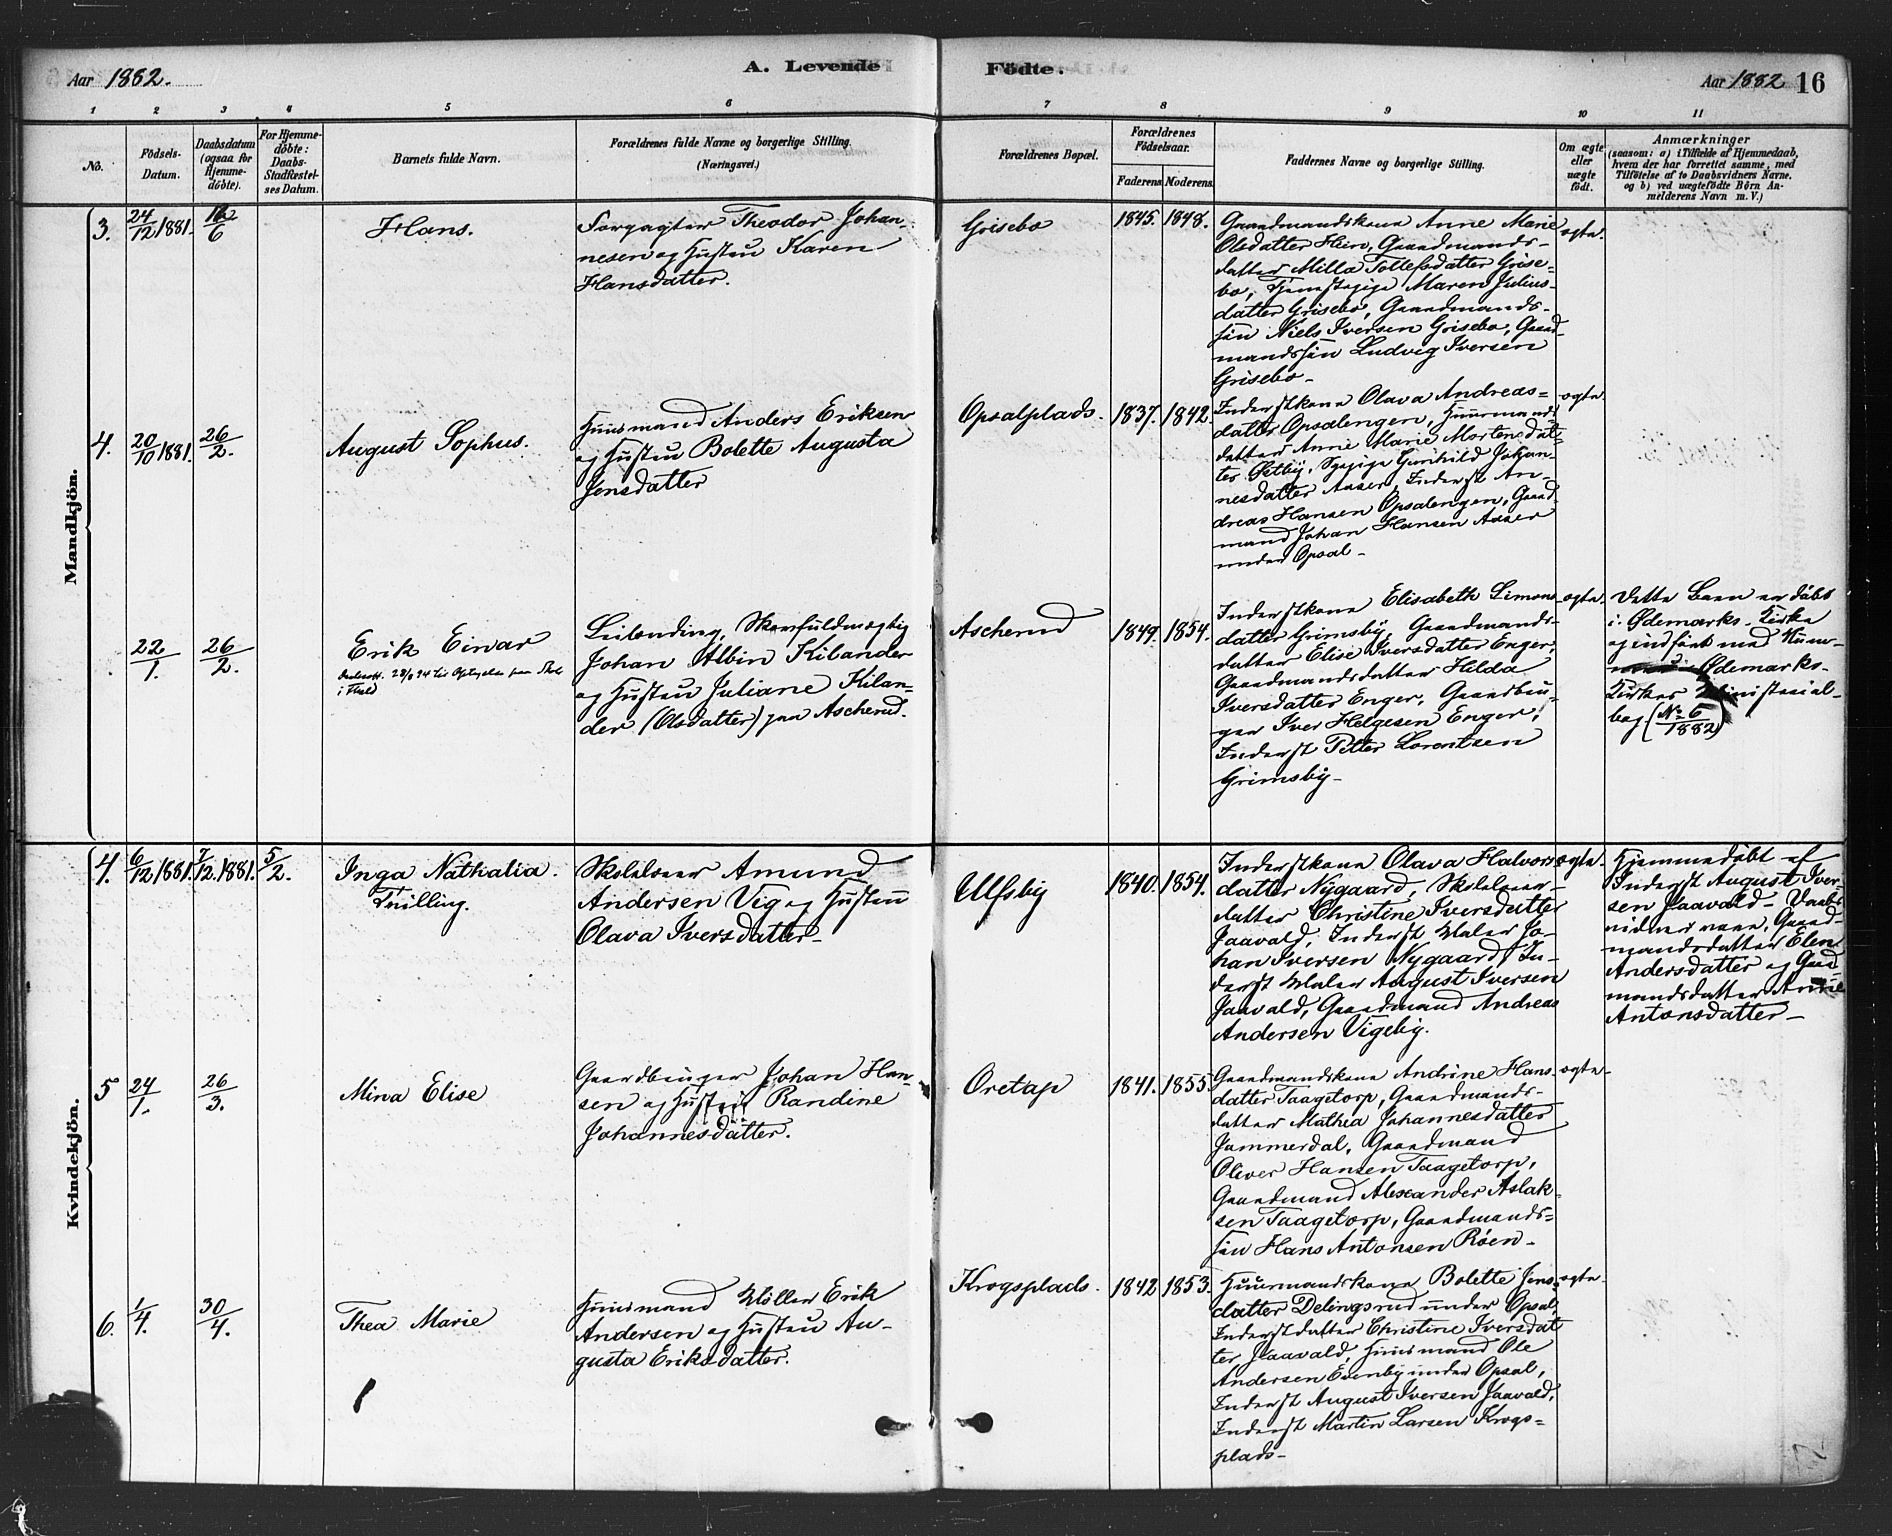 Aar 1882.
A. Levende
Födte.
Aar 1882
16
1
2
3
4
5
6
7
8
9
10
11
No.
Födsels-
Datum.
Daabsdatum
(ogsaa for
Hjemme-
döbte).
For Hjemme-
döbte:
Daabs-
Stadfæstel-
ses Datum.
Barnets fulde Navn.
Forældrenes fulde Navne og borgerlige Stilling.
(Næringsvei.)
Forældrenes Bopæl.
Forældrenes
Födselsaar.
Faderens
Moderens
Faddernes Navne og borgerlige Stilling.
Om ægte
eller
uægte
födt.
Anmærkninger
(saasom: a) i Tilfælde af Hjemmedaab,
hvem der har forrettet samme, med
Tilföielse af to Daabsvidners Navne.
og b) ved uægtefödte Börn An-
melderens Navn m. V.)
Mandkjön.
3.
24/12 1881.
/6
Hans.
Forpagter Theodor Johan-
nesen og Hustru Karen
Hansdatter.
Grisebo
1845.
1848.
Gaardmandskone Anne Marie
Olsdatter Hein, Gaardmands-
datter Milla Tollefsdatter Grise-
bo, Tjenestepige Maren Julius-
datter Grisebo, Gaardmands-
sön Niels Iversen Grisebo, Gaard-
mandssön Ludvig Iversen
Grisebo-
ægte.
4.
20/10 1881.
26/2.
August Sophus.
Huusmand Anders Eriksen
og Hustru Bolette Augusta
Jensdatter
Opsalplads.
1837.
1842.
Inderstkone Olava Andreas-
datter Opsalengen, Huusmands-
datter Anne Marie Mortensdat-
ter Østby, Sypige Gunhild Johan-
nesdatter Aaser, Inderst An-
dreas Hansen Opsalengen, Gaard-
mand Johan Hansen Aaser
under Opsal-
ægte.
22/1.
26/2.
Erik Einar
28/8 94 til Optagelse paa
i Thald
Skovfuldmægtig
Johan Albin Kilander
og Hustru Juliane Kilan-
der (Olsdatter) paa Ascherud.
Ascherud
1849.
1854.
Inderstkone Elisabeth Simons-
datter Grimsby, Gaardmands-
datter Elise Iversdatter Enger,
Gaardmandsdatter Hilda
Iversdatter Enger, Gaardbru-
ger Iver Helgesen Enger,
Inderst Petter Lorentsen
Grimsby-
ægte.
Dette Barn er döbt
i Ødemarks Kirke
og indfört med Num-
Ødemarks
Kirkes Ministerial-
bog (No 6/1882)
Kvindekjön.
4.
6/12 1881.
7/12. 1881.
5/2.
Inga Nathalia.
Tvilling.
Skolelærer Amund
Andersen Vig og Hustru
Olava Iversdatter-
Ulfsby
1840.
1854.
Inderstkone Olava Halvors-
datter Nygaard, Skolelærer-
datter Christine Iversdatter
Jaavald, Inderst Maler Jo-
han Iversen Nygaard, In-
derst Maler August Iversen
Jaavald, Gaardmand Andreas
Andersen Vigeby.
ægte-
Hjemmedöbt af
Inderst August Iver-
sen Jaavald- Daabs-
vidner vare, Gaard-
mandsdatter Elen
Andersdatter og Gaard-
mandsdatter
Antonsdatter-
5
24/1.
26/3.
Mina Elise
Gaardbruger Johan Han-
sen og Hustru Randine
Johannesdatter.
Oretap
1841.
1855
Gaardmandskone Andrine Hans-
datter Taagetorp, Gaardmands-
datter Mathea Johannesdatter
Jammerdal, Gaardmand
Oliver Hansen Taagetorp,
Gaardmand Alexander Aslak-
sen Taagetorp, Gaardmands-
sön Hans Antonsen Röen-
ægte-
6.
1/4.
30/4.
Thea Marie
Huusmand Möller Erik
Andersen og Hustru Au-
gusta Eriksdatter.
Krogsplads.
1842
1853.
Huusmandskone Bolette Jens-
datter Delingsrud under Opsal,
Inderstdatter Christine Iversdat-
ter Jaavald, Huusmand Ole
Andersen Evenby under Opsal,
Inderst August Iversen Jaavald,
Inderst Martin Larsen Krogs-
plads-
ægte-